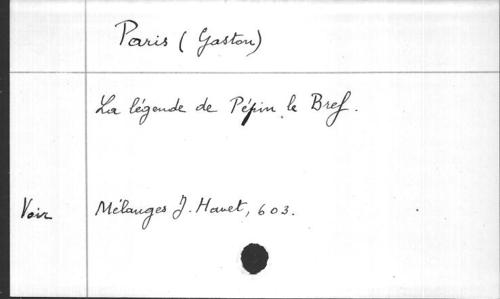 Paris (Gaston)
La légende de Pépin le Bref.
Voir Mélanges J. Havet, 603.